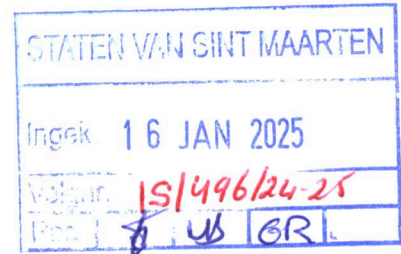 STATEN VAN SINT MAARTEN
Ingek. 16 JAN 2025
Volgnr. IS/496/24-25
Par. GR